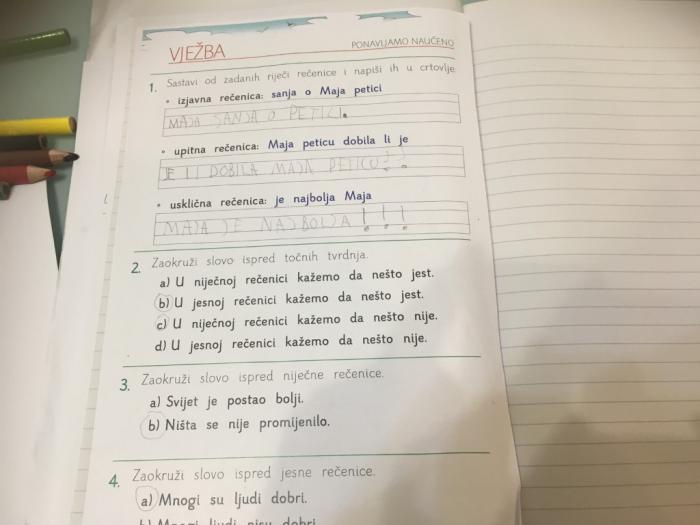 VJEŽBA
PONAVLJAMO NAUČENO
1. Sastavi od zadanih riječi rečenice i napiši ih u crtovlje.
• izjavna rečenica: sanja o Maja petici
MAJA SANJA O PETICI.
• upitna rečenica: Maja peticu dobila li je
JE LI DOBILA MAJA PETICU??
• usklična rečenica: je najbolja Maja
MAJA JE NAJBOLJA!!!
2. Zaokruži slovo ispred točnih tvrdnja.
a) U niječnoj rečenici kažemo da nešto jest.
b) U jesnoj rečenici kažemo da nešto jest.
c) U niječnoj rečenici kažemo da nešto nije.
d) U jesnoj rečenici kažemo da nešto nije.
3. Zaokruži slovo ispred niječne rečenice.
a) Svijet je postao bolji.
b) Ništa se nije promijenilo.
4. Zaokruži slovo ispred jesne rečenice.
a) Mnogi su ljudi dobri.
b) Mnogi ljudi nisu dobri.